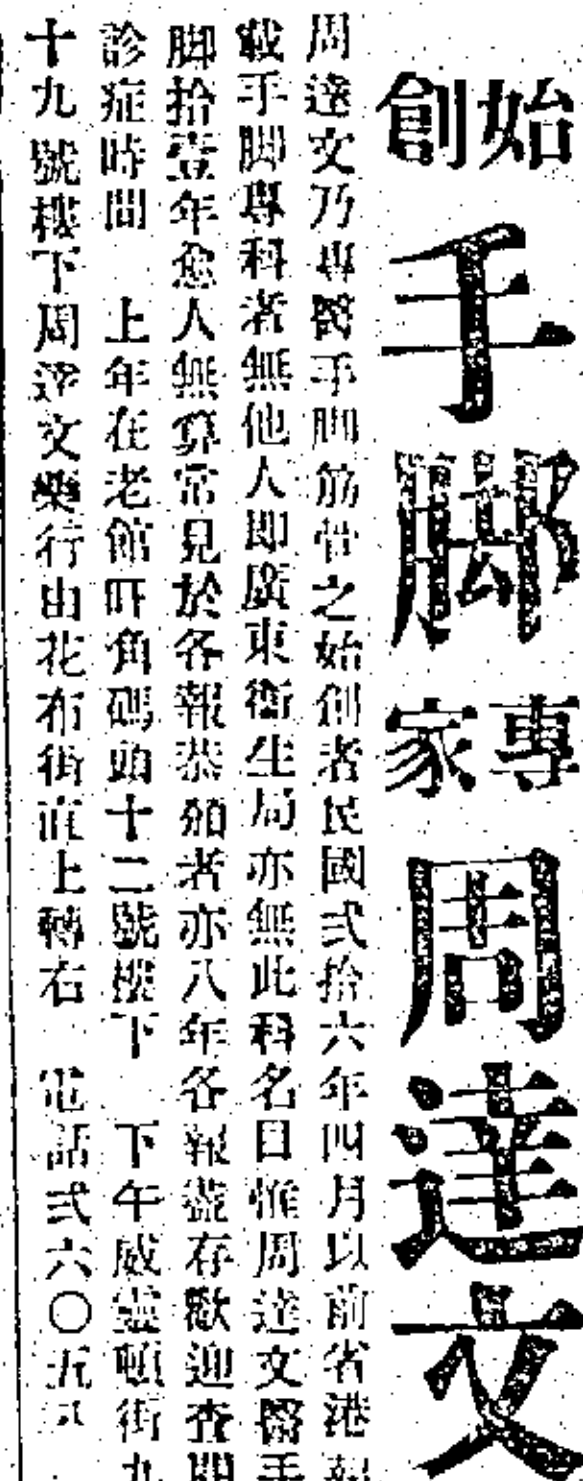 始創
手脚
專家
周達文
周達文乃專醫手脚筋骨之始創者民國弍拾六年四月以前省港報
載手脚專科者無他人即廣東衛生局亦無此科名目惟周達文醫手
脚拾壹年愈人無算常見於各報恭頌者亦八年各報盡存歡迎查閱
診症時間 上年在老舘旺角碼頭十二號樓下 下午威靈頓街九
十九號樓下周達文藥行由花布街直上轉右 電話弍六〇五